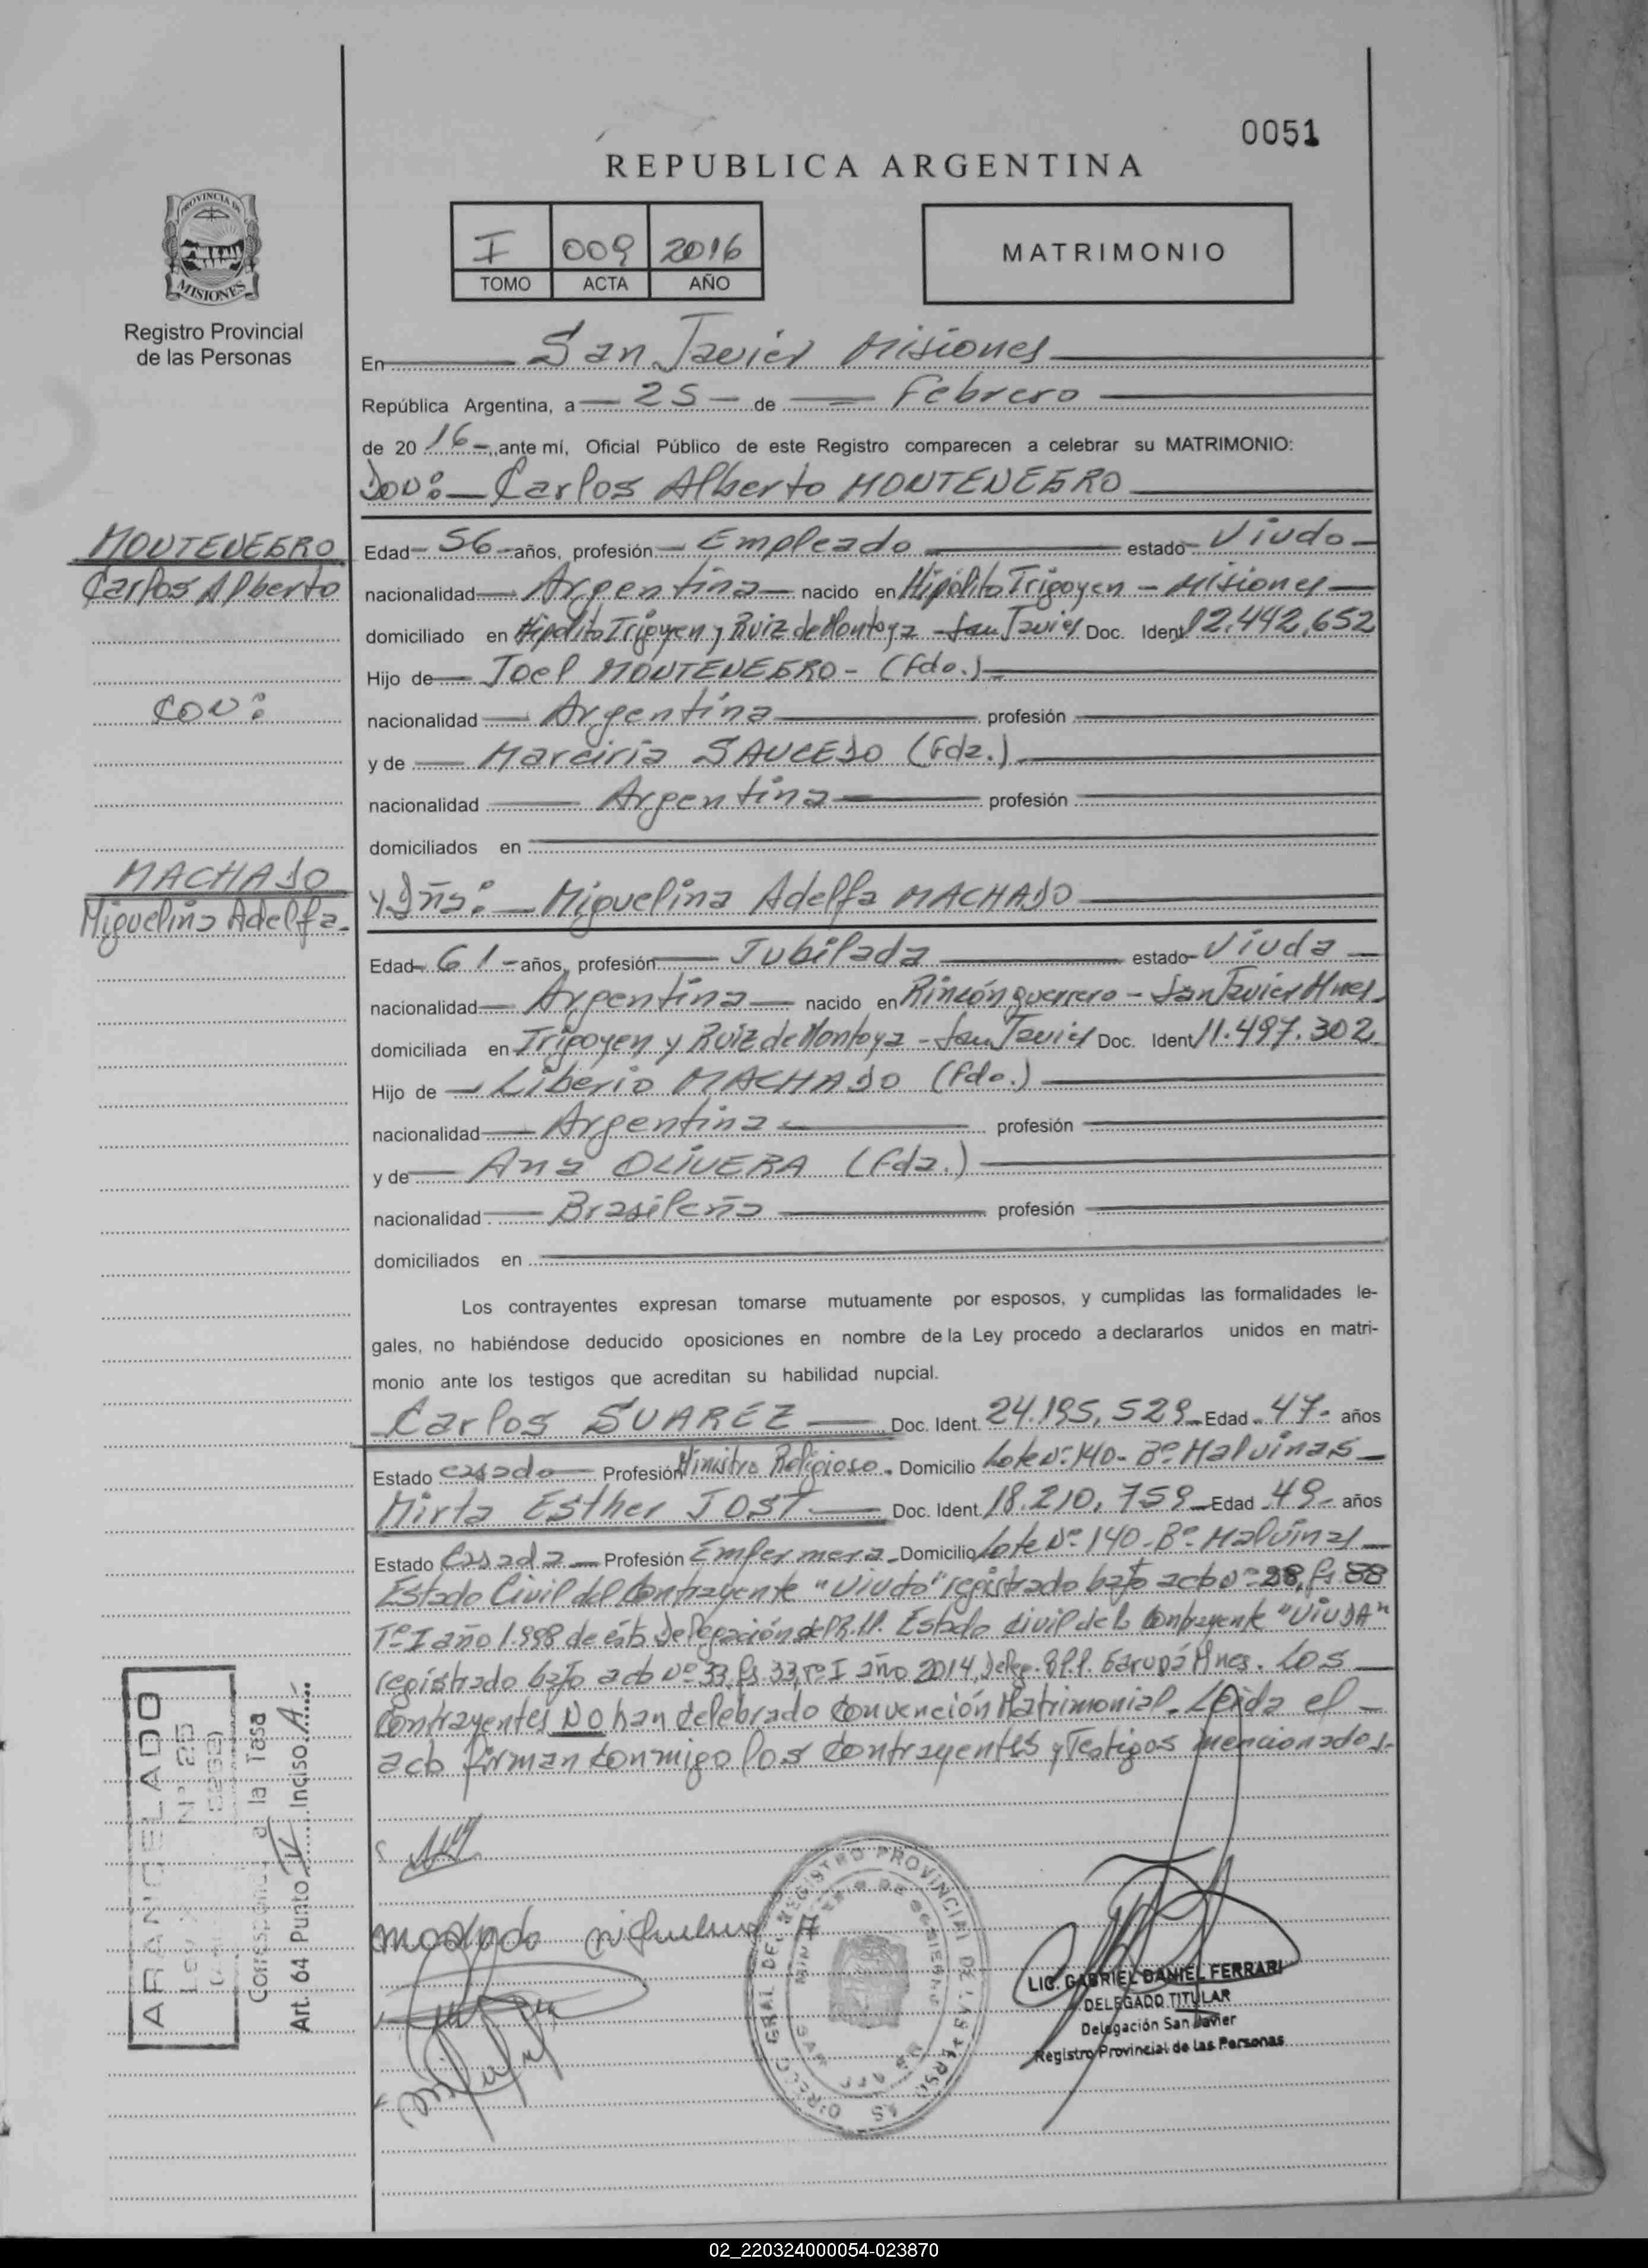 0051
REPUBLICA ARGENTINA
I 009 2016
TOMO ACTA AÑO
MATRIMONIO
PROVINCIA DE
MISIONES
Registro Provincial
de las Personas
En San Javier Misiones
República Argentina, a 25 de Febrero
de 20 16 ante mí, Oficial Público de este Registro comparecen a celebrar su MATRIMONIO:
Don: Carlos Alberto MONTENEGRO
MONTENEGRO
Carlos Alberto
CON:
MACHADO
Miguelina Adelfa.
Edad 56 años, profesión Empleado estado Viudo
nacionalidad Argentina nacido en Hipólito Irigoyen - Misiones
domiciliado en Hipolito Irigoyen y Ruiz de Montoya - San Javier Doc. Ident 12.442.652
Hijo de Joel MONTENEGRO - (Fdo.)
nacionalidad Argentina profesión
y de Marciria SAUCEDO (Fda.)
nacionalidad Argentina profesión
domiciliados en
y Dña: Miguelina Adelfa MACHADO
Edad 61 años, profesión Jubilada estado Viuda
nacionalidad Argentina nacido en Rincón guerrero - San Javier Mnes.
domiciliada en Irigoyen y Ruiz de Montoya - San Javier Doc. Ident 11.497.302
Hijo de Liberio MACHADO (Fdo.)
nacionalidad Argentina profesión
y de Ana OLIVERA (Fda.)
nacionalidad Brasileña profesión
domiciliados en
Los contrayentes expresan tomarse mutuamente por esposos, y cumplidas las formalidades le-
gales, no habiéndose deducido oposiciones en nombre de la Ley procedo a declararlos unidos en matri-
monio ante los testigos que acreditan su habilidad nupcial.
Carlos SUAREZ Doc. Ident. 24.195.529 Edad 47 años
Estado casado Profesión Ministro Religioso. Domicilio Lote Nº 140 - Bº Malvinas
Mirta Esther JOST Doc. Ident. 18.210.759 Edad 49 años
Estado Casada Profesión Emfermera Domicilio Lote Nº 140 - Bº Malvinas
Estado Civil del Contrayente "Viudo" registrado bajo acto nº 28, fs 88
Tº I año 1.998 de ésta Delegación del R.P.P. Estado civil de la Contrayente "VIUDA"
registrado bajo acto Nº 33, fs. 33, Tº I año 2014, Deleg. R.P.P. Garupá Mnes. Los
Contrayentes NO han celebrado Convención Matrimonial. Leída el
acto firman conmigo los contrayentes y Testigos mencionados.
ARANCELADO
Corresponde a la Tasa
Art. 64 Punto IV Inciso A
DIREC. GRAL DEL REGISTRO PROVINCIAL DE LAS PERSONAS
LIC. GABRIEL DANIEL FERRARI
DELEGADO TITULAR
Delegación San Javier
Registro Provincial de las Personas
02_220324000054-023870